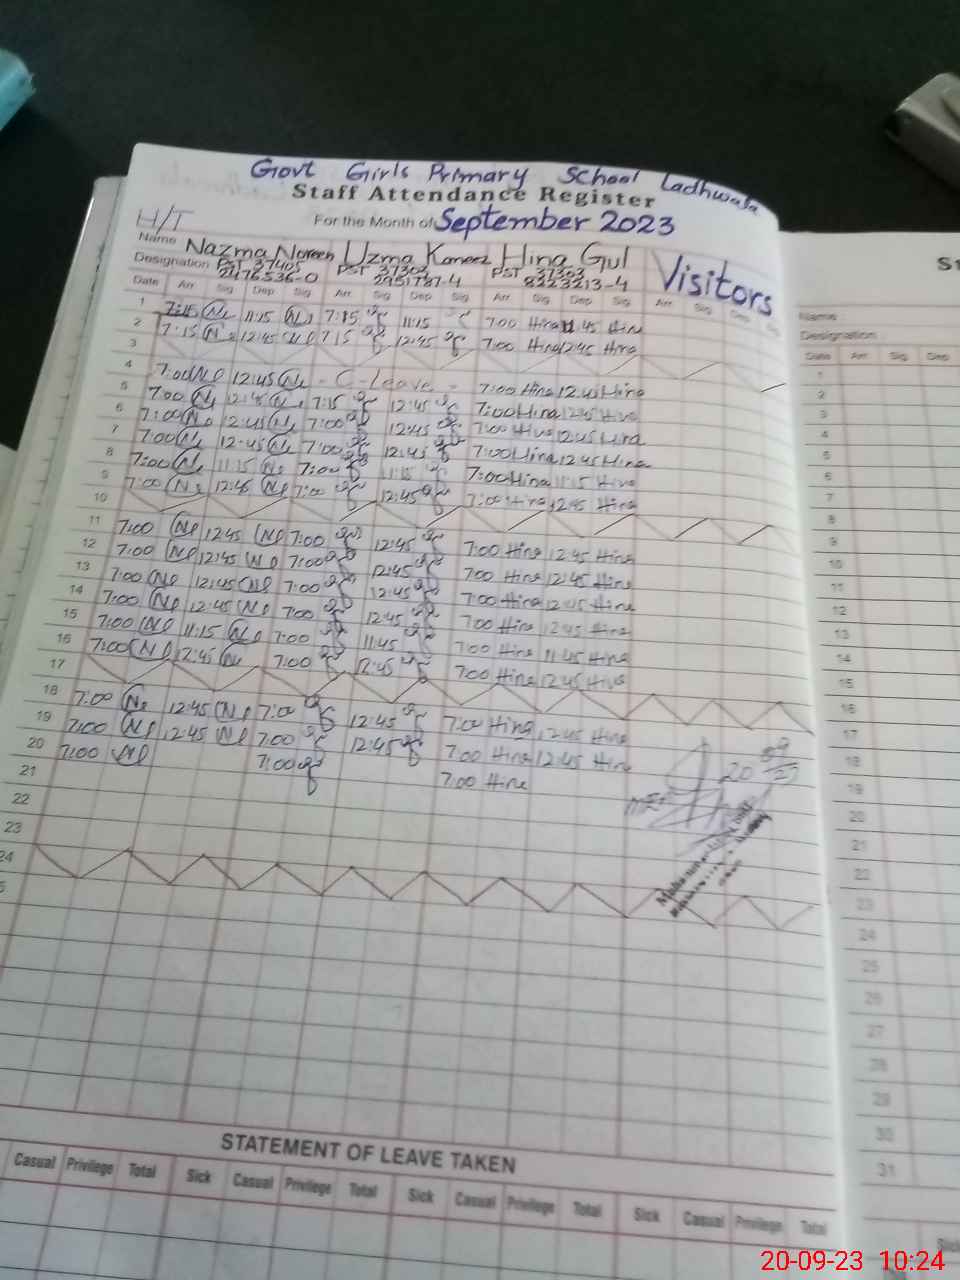 Govt Girls Primary School Ladhwala
Staff Attendance Register
For the Month of September 2023
H/T
Name Nazma Noreen Uzma Kaneez Hina Gul Visitors
Designation PST 37405 PST 37303 PST 37303
2176536-0 2951787-4 8223213-4
Date Arr Sig Dep Sig Arr Sig Dep Sig Arr Sig Dep Sig Arr Sig Dep Sig
1 7:15 11:15 7:15 11:15 7:00 Hina 11.45 Hina
2 7:15 12:45 7:15 12:45 7:00 Hina 12:45 Hina
3
4 7:00 12:45 - C-Leave - 7:00 Hina 12.45 Hina
5 7:00 12:45 7:15 12:45 7:00 Hina 12:45 Hina
6 7:00 12:45 7:00 12:45 7:00 Hina 12:45 Hina
7 7:00 12:45 7:00 12:45 7:00 Hina 12:45 Hina
8 7:00 11:15 7:00 11:15 7:00 Hina 11:15 Hina
9 7:00 12:45 7:00 12:45 7:00 Hina 12:45 Hina
10
11 7:00 12:45 7:00 12:45 7:00 Hina 12:45 Hina
12 7:00 12:45 7:00 12:45 7:00 Hina 12:45 Hina
13 7:00 12:45 7:00 12:45 7:00 Hina 12:45 Hina
14 7:00 12:45 7:00 12:45 7:00 Hina 12:45 Hina
15 7:00 11:15 7:00 11:45 7:00 Hina 11:45 Hina
16 7:00 12:45 7:00 12:45 7:00 Hina 12:45 Hina
17
18 7:00 12:45 7:00 12:45 7:00 Hina 12:45 Hina
19 7:00 12:45 7:00 12:45 7:00 Hina 12:45 Hina
20 7:00 7:00 7:00 Hina
21
22
23
24
STATEMENT OF LEAVE TAKEN
Casual Privilege Total Sick Casual Privilege Total Sick Casual Privilege Total Sick Casual Privilege Total
Name
Designation
Date Arr Sig Dep
1
2
3
4
5
6
7
8
9
10
11
12
13
14
15
16
17
18
19
20
21
22
23
24
25
26
27
28
29
30
31
20-09-23 10:24